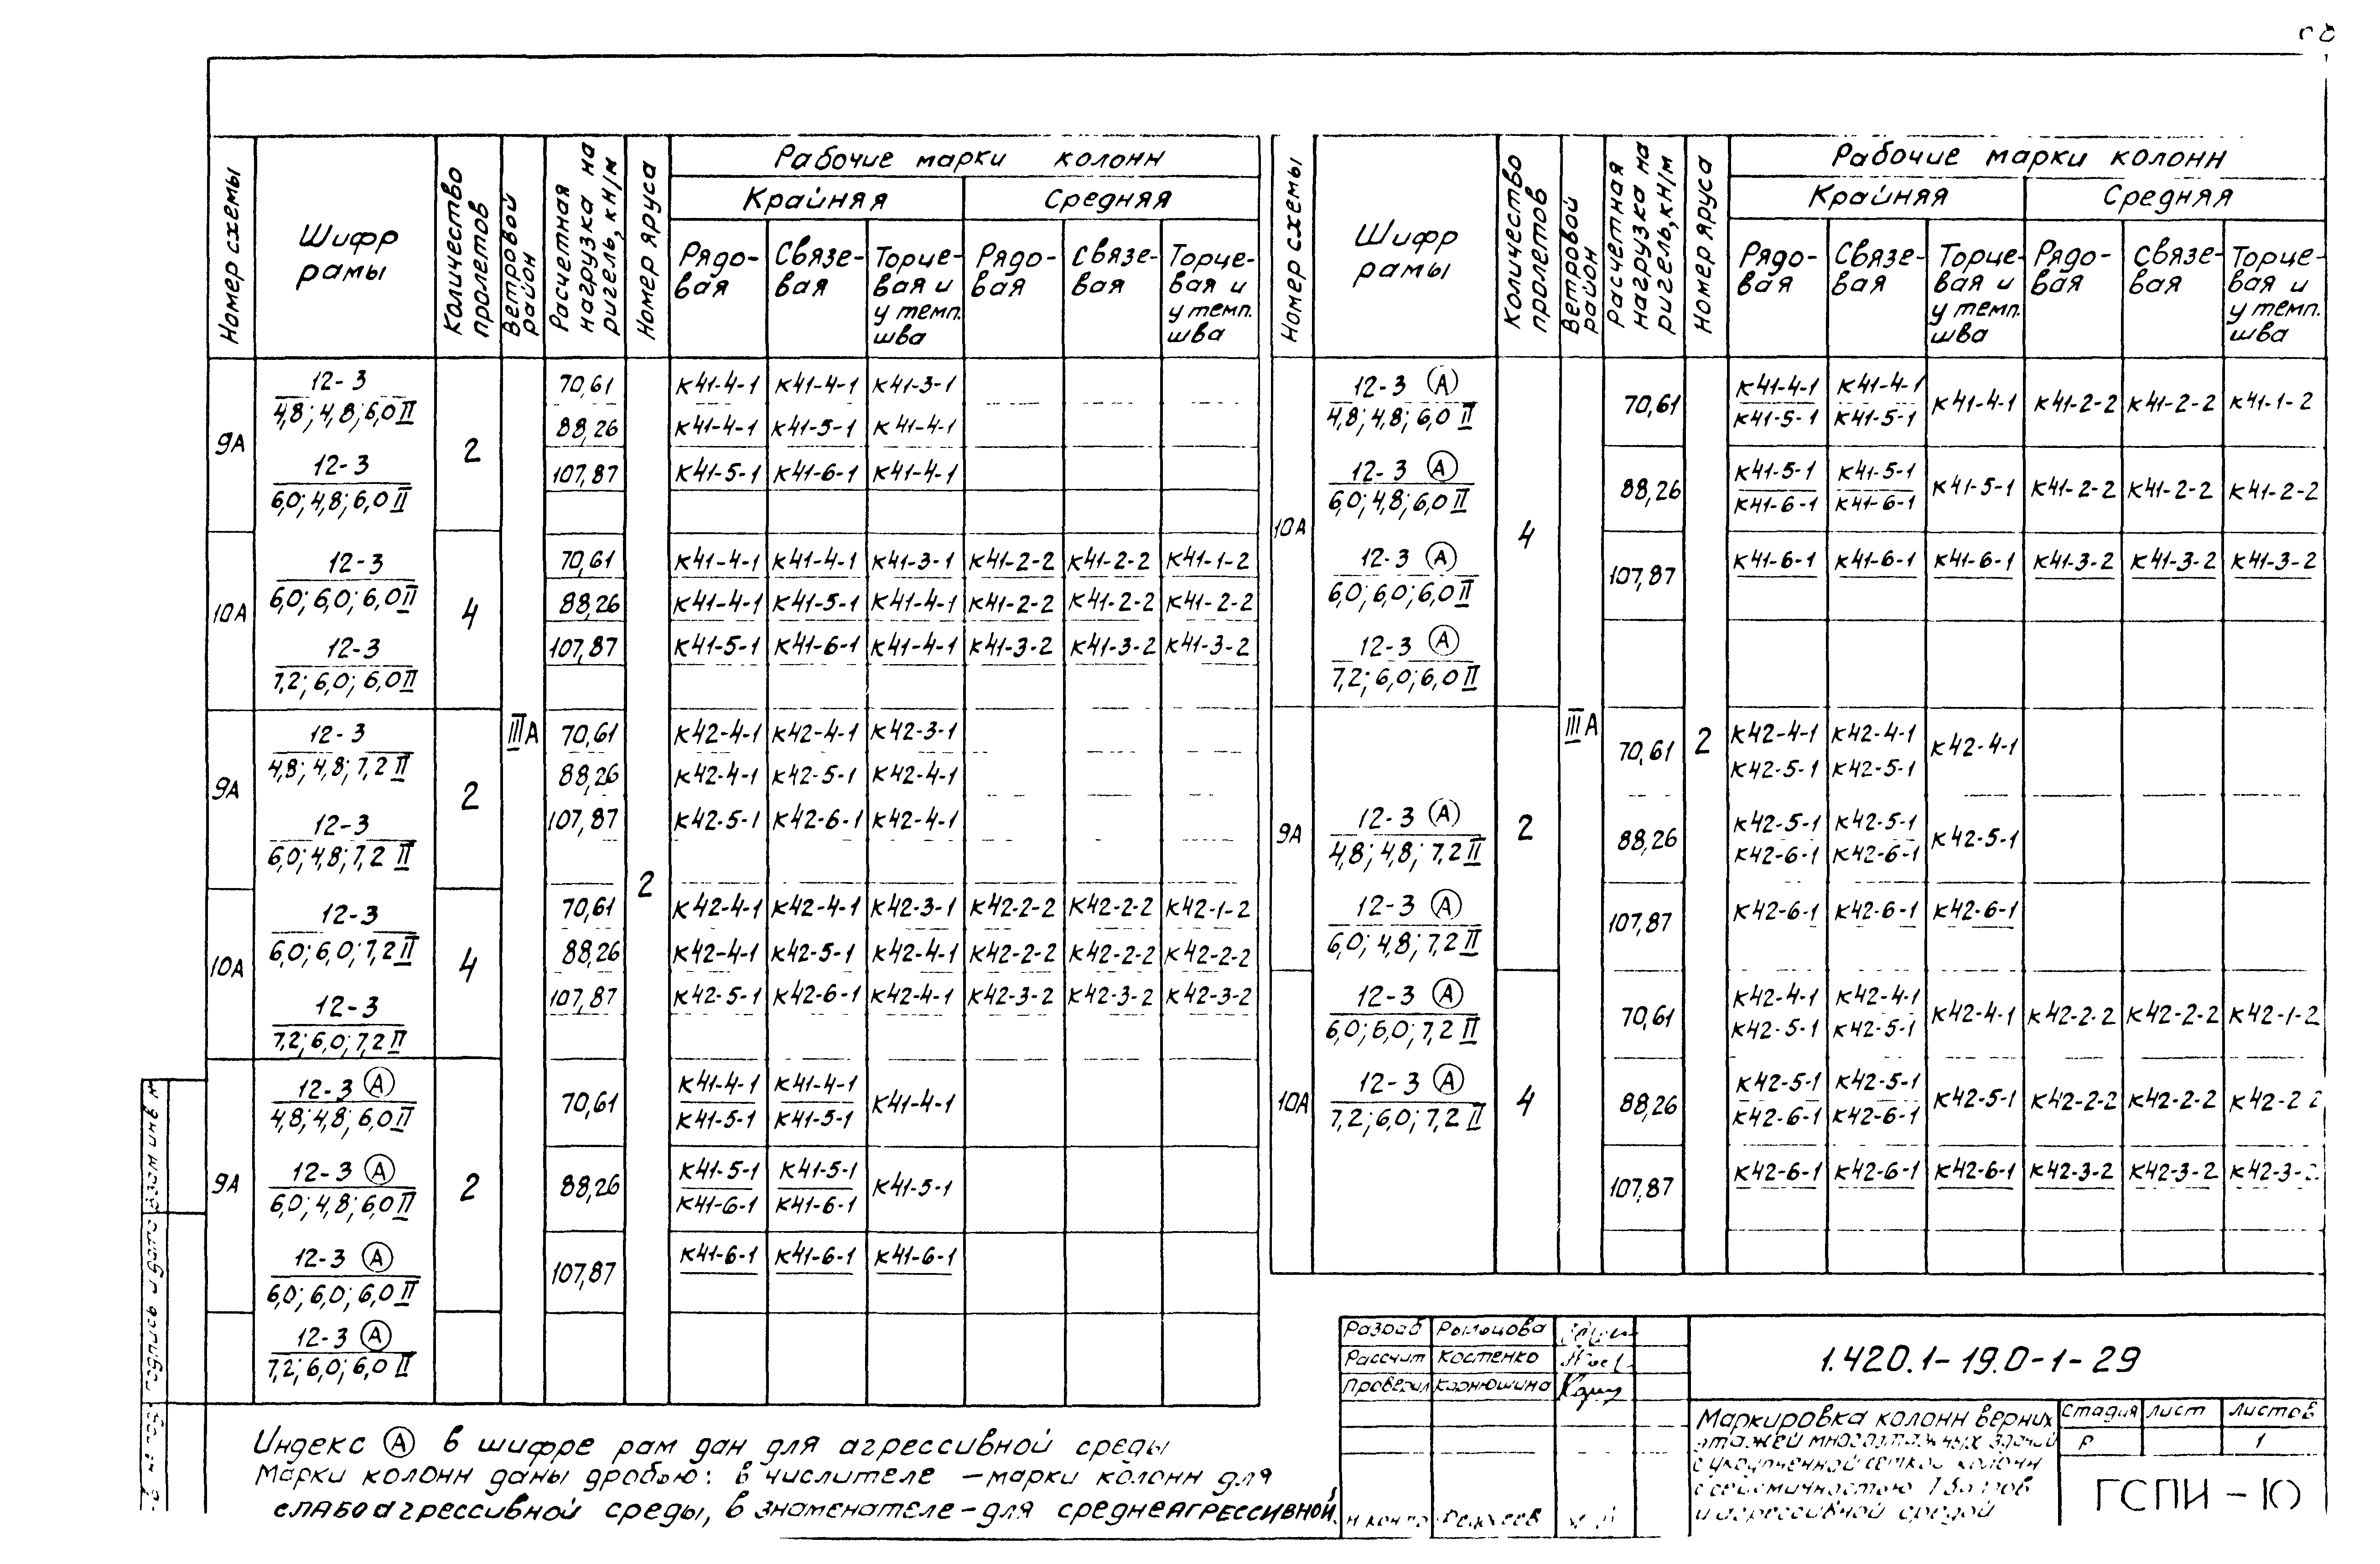 Номер схемы
Шифр рамы
Количество пролетов
Ветровой район
Расчетная нагрузка на ригель, кН/м
Номер яруса
Рабочие марки колонн
Крайняя Средняя
Рядо-вая Связе-вая Торце-вая и у темп. шва Рядо-вая Связе-вая Торце-вая и у темп. шва
9А
12-3
4,8; 4,8; 6,0 II
12-3
6,0; 4,8; 6,0 II
2
IIIА
2
70,61 К41-4-1 К41-4-1 К41-3-1
88,26 К41-4-1 К41-5-1 К41-4-1
107,87 К41-5-1 К41-6-1 К41-4-1
10А
12-3
6,0; 6,0; 6,0 II
12-3
7,2; 6,0; 6,0 II
4
70,61 К41-4-1 К41-4-1 К41-3-1 К41-2-2 К41-2-2 К41-1-2
88,26 К41-4-1 К41-5-1 К41-4-1 К41-2-2 К41-2-2 К41-2-2
107,87 К41-5-1 К41-6-1 К41-4-1 К41-3-2 К41-3-2 К41-3-2
9А
12-3
4,8; 4,8; 7,2 II
12-3
6,0; 4,8; 7,2 II
2
70,61 К42-4-1 К42-4-1 К42-3-1
88,26 К42-4-1 К42-5-1 К42-4-1
107,87 К42-5-1 К42-6-1 К42-4-1
10А
12-3
6,0; 6,0; 7,2 II
12-3
7,2; 6,0; 7,2 II
4
70,61 К42-4-1 К42-4-1 К42-3-1 К42-2-2 К42-2-2 К42-1-2
88,26 К42-4-1 К42-5-1 К42-4-1 К42-2-2 К42-2-2 К42-2-2
107,87 К42-5-1 К42-6-1 К42-4-1 К42-3-2 К42-3-2 К42-3-2
9А
12-3 А
4,8; 4,8; 6,0 II
12-3 А
6,0; 4,8; 6,0 II
12-3 А
6,0; 6,0; 6,0 II
12-3 А
7,2; 6,0; 6,0 II
2
70,61 К41-4-1 К41-4-1 К41-4-1
К41-5-1 К41-5-1
88,26 К41-5-1 К41-5-1 К41-5-1
К41-6-1 К41-6-1
107,87 К41-6-1 К41-6-1 К41-6-1
Номер схемы
Шифр рамы
Количество пролетов
Ветровой район
Расчетная нагрузка на ригель, кН/м
Номер яруса
Рабочие марки колонн
Крайняя Средняя
Рядо-вая Связе-вая Торце-вая и у темп. шва Рядо-вая Связе-вая Торце-вая и у темп. шва
10А
12-3 А
4,8; 4,8; 6,0 II
12-3 А
6,0; 4,8; 6,0 II
12-3 А
6,0; 6,0; 6,0 II
12-3 А
7,2; 6,0; 6,0 II
4
IIIА
2
70,61 К41-4-1 К41-4-1 К41-4-1 К41-2-2 К41-2-2 К41-1-2
К41-5-1 К41-5-1
88,26 К41-5-1 К41-5-1 К41-5-1 К41-2-2 К41-2-2 К41-2-2
К41-6-1 К41-6-1
107,87 К41-6-1 К41-6-1 К41-6-1 К41-3-2 К41-3-2 К41-3-2
9А
12-3 А
4,8; 4,8; 7,2 II
12-3 А
6,0; 4,8; 7,2 II
2
70,61 К42-4-1 К42-4-1 К42-4-1
К42-5-1 К42-5-1
88,26 К42-5-1 К42-5-1 К42-5-1
К42-6-1 К42-6-1
107,87 К42-6-1 К42-6-1 К42-6-1
10А
12-3 А
6,0; 6,0; 7,2 II
12-3 А
7,2; 6,0; 7,2 II
4
70,61 К42-4-1 К42-4-1 К42-4-1 К42-2-2 К42-2-2 К42-1-2
К42-5-1 К42-5-1
88,26 К42-5-1 К42-5-1 К42-5-1 К42-2-2 К42-2-2 К42-2 2
К42-6-1 К42-6-1
107,87 К42-6-1 К42-6-1 К42-6-1 К42-3-2 К42-3-2 К42-3-
Индекс А в шифре рам дан для агрессивной среды
Марки колонн даны дробью: в числителе – марки колонн для
слабоагрессивной среды, в знаменателе – для среднеагрессивной
Разраб
Рассчит Костенко
Проверил
Н контр
1.420.1-19.0-1-29
Маркировка колонн верхних
этажей многоэтажных зданий
с укрупненной сеткой колонн
с сейсмичностью 7 баллов
и агрессивной средой
Стадия Лист Листов
Р 1
ГСПИ-10